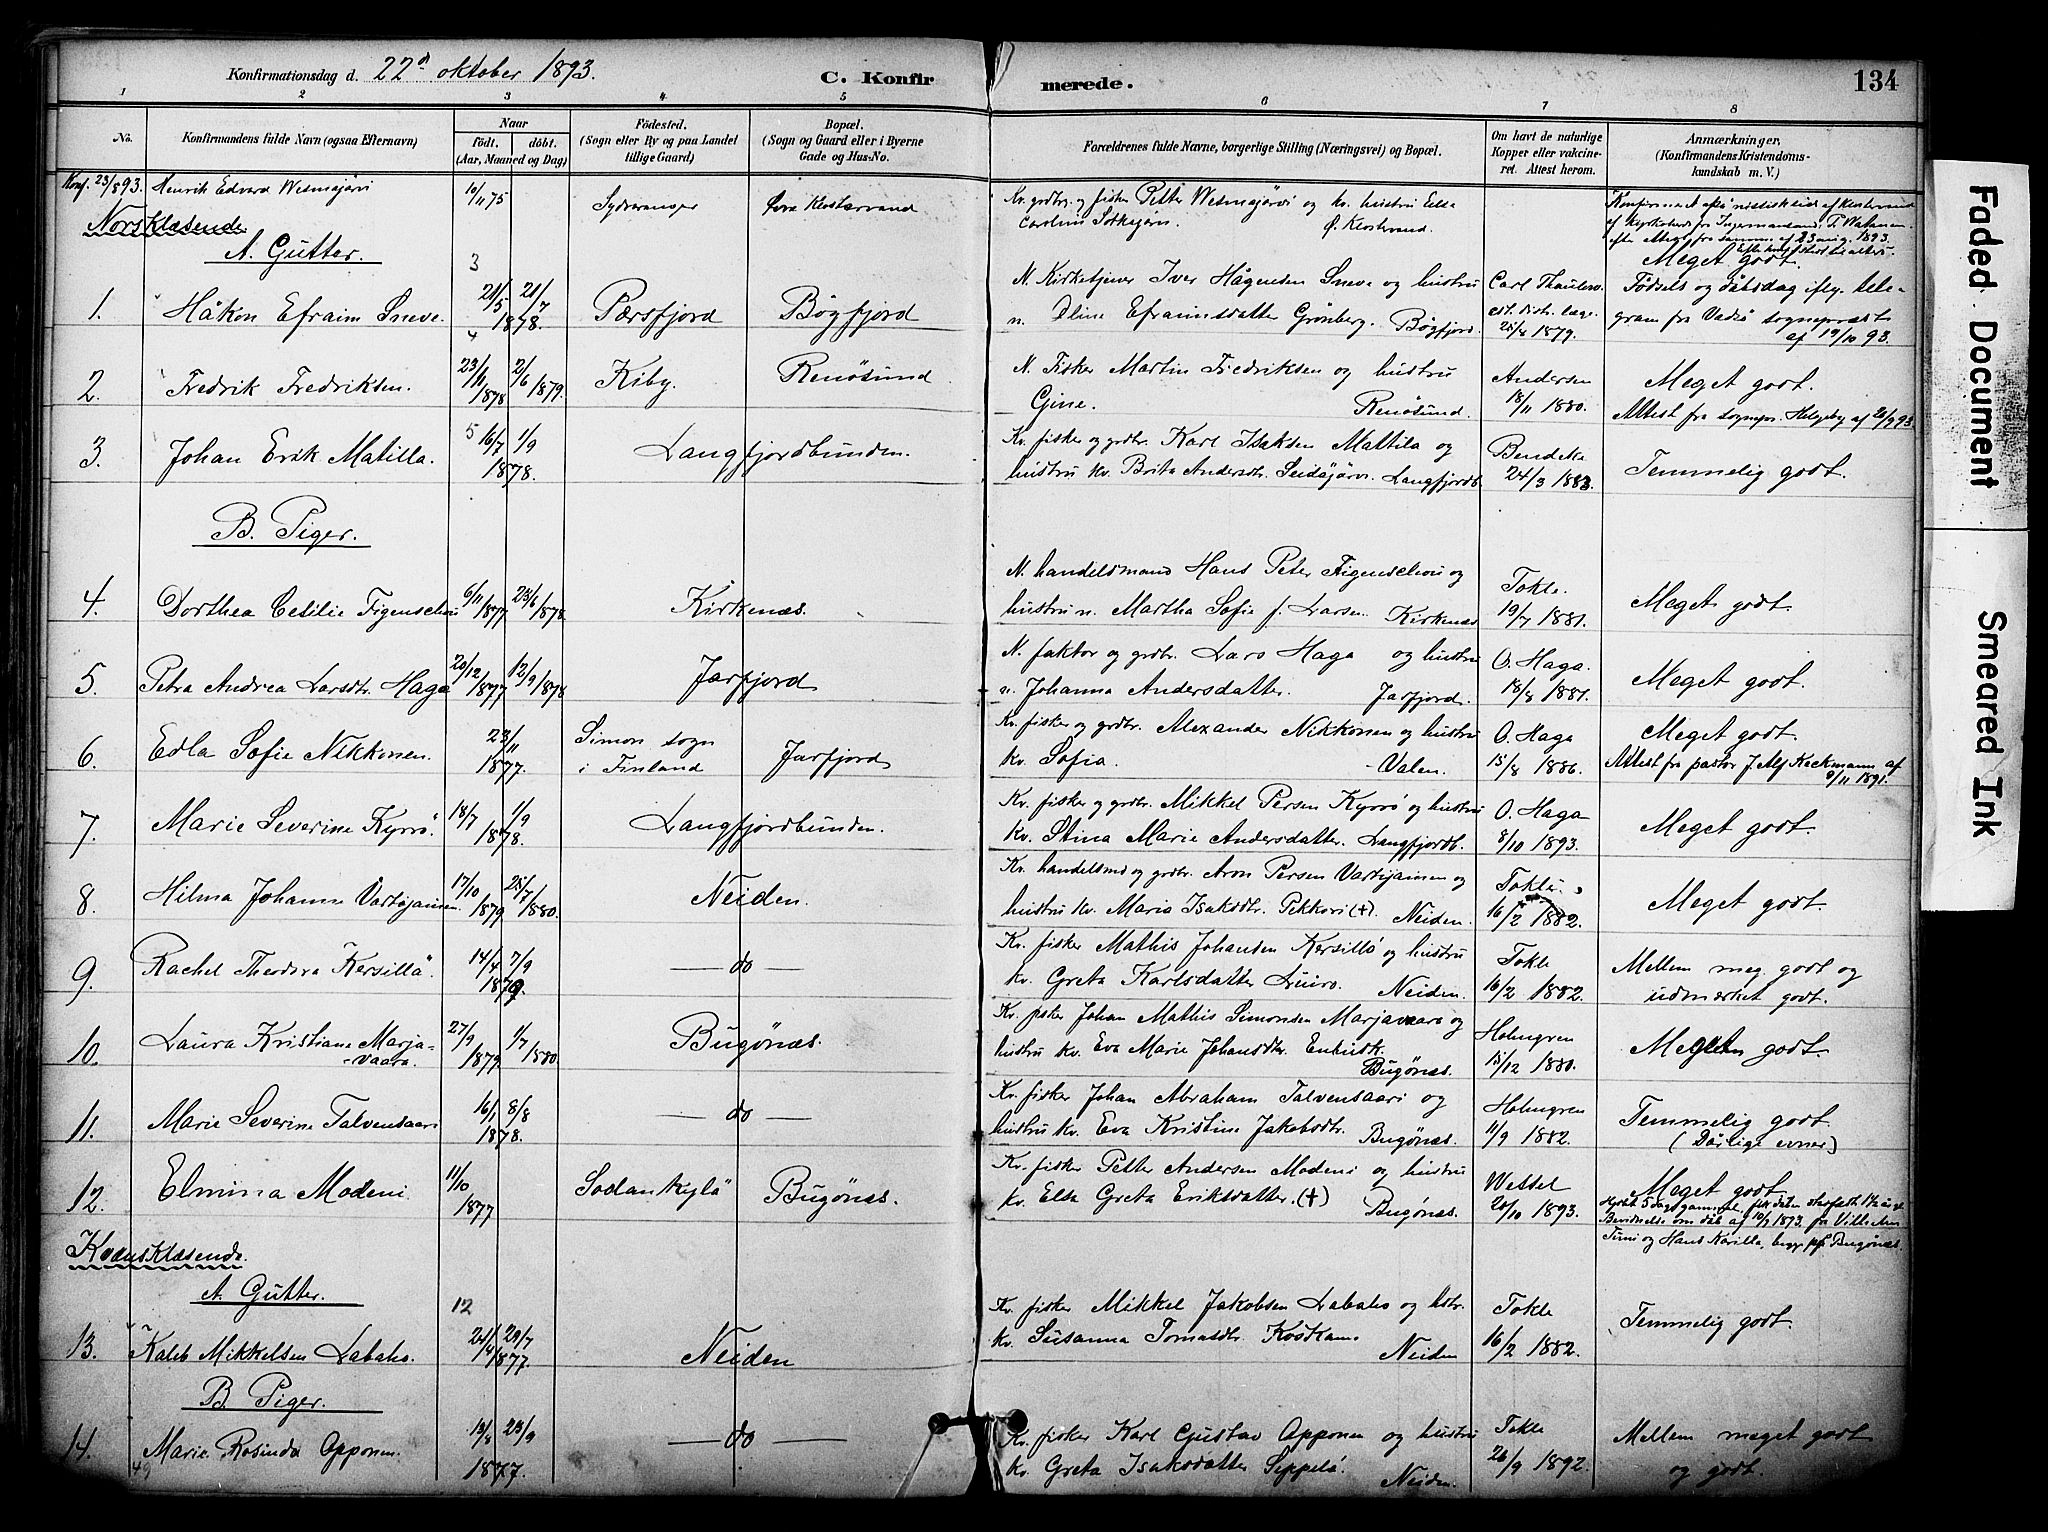 Konfirmationsdag d. 22d oktober 1893. C. Konfirmerede. 134
1 2 3 4 5 6 7 8
No. Konfirmandens fulde Navn (ogsaa Efternavn) Naar født. døbt. (Aar, Maaned og Dag) Födested. (Sogn eller By og paa Landet tillige Gaard) Bopæl. (Sogn og Gaard eller i Byerne Gade og Hus-No. Forældrenes fulde Navne, borgerlige Stilling (Næringsvei) og Bopæl. Om havt de naturlige Kopper eller vakcineret. Attest herom. Anmærkninger, (Konfirmandens Kristendomskundskab m. V.)
Konf. 23/8 93. Henrik Edvard Wesmajärvi 10/11 75 Sydvaranger Øvre Klostervand Kv. grdbr. og fisker Petter Wesmajärvi og kv. hustru Elsa
Carolina Ø. Klostervand.
Norsklæsende
A. Gutter. 3
1. Håkon Efraim Sneve. 21/5 21/7 1878. Persfjord Bøgfjord N. Kirketjener Iver Hågensen Sneve og hustru
n. Oline Efraimsdatter Grønberg. Bøgfjord. Carl Thaulow est. distr. læge 25/8 1879. Meget godt.
Fødsels og dåbsdag iflg. telegram fra Vadsø sognepræst af 19/10 93.
4
2. Fredrik Fredriksen. 23/11 1878 2/6 1879. Kiby. Renøsund N. Fisker Martin Fredriksen og hustru
Gine. Renøsund. Andersen 18/11 1880. Meget godt.
Attest fra sognepr. Helgeby af 20/9 93
5
3. Johan Erik Matilla. 16/7 1/9 1878. Langfjordbunden. Kv. fisker og grdbr. Karl Isaksen Mattila og
hustru kv. Brita Andersdtr. Seidäjärvi. Langfjordb. Bendeke 24/3 1883. Temmelig godt.
B. Piger.
4. Dorthea Cecilie Figenschou 6/11 1877 23/6 1878. Kirkenæs. N. handelsmand Hans Peter Figenschou og
hustru n. Martha Sofie f. Larsen. Kirkenæs Tokle. 19/7 1881. Meget godt.
5. Petra Andrea Larsdtr. Haga 20/12 1877 12/9 1878 Jarfjord N. faktor og grdbr. Lars Haga og hustru
n. Johanna Andersdatter. Jarfjord. O. Haga. 18/8 1881. Meget godt.
6. Edla Sofie Nikkonen. 23/11 1877. Simon sogn i Finland Jarfjord Kv. fisker og grdbr. Alexander Nikkonen og hustru
kv. Sofia. -Valen. O. Haga 15/8 1886. Meget godt.
Attest fra pastor J. Alf Keckmann af 9/11 1891.
7. Marie Severine Kyrrö. 18/7 1/9 1878. Langfjordbunden. Kv. fisker og grdbr. Mikkel Persen Kyrrö og hustru
kv. Stina Marie Andersdatter. Langfjordb. O. Haga 8/10 1893. Meget godt.
8. Hilma Johanne Vartijainen. 17/10 1879 25/7 1880. Neiden. Kv. handelsmd og grdbr. Aron Persen Vartijainen og
hustru kv. Maria Isaksdtr. Pekkari (+). Neiden. Tokle. 16/2 1882. Meget godt.
9. Rachel Theodora Kersillä. 14/4 7/9 1879. — do — Kv. fisker Mathis Johansen Kersillö og hustru
kv. Greta Karlsdatter Luiro. Neiden. Tokle 16/2 1882. Mellem meg. godt og
udmærket godt.
10. Laura Kristiane Marja-
-vaara. 27/9 1879. 1/7 1880. Bugønæs. Kv. fisker Johan Mathis Simonsen Marjavaara og
hustru kv. Eva Marie Johansdtr. Bugønæs. Holmgren 15/12 1880. Meget godt.
11. Marie Severine Talvensaari 16/1 8/8 1878. — do — Kv. fisker Johan Abraham Talvensaari og
hustru kv. Eva Kristine Jakobsdtr. Bugønæs. Holmgren 11/9 1882. Temmelig godt.
(Dårlige evner)
12. Elmina Modeni 11/10 1877 Sodankylä Bugønæs. Kv. fisker Petter Andersen Modeni og hustru
kv. Elsa Greta Eriksdatter. (+) Bugønæs. Wessel 20/10 1893. Meget godt
Kvænsklæsende.
A. Gutter. 12
13. Kaleb Mikkelsen Labaho. 24/4 29/7 1877. Neiden Kv. fisker Mikkel Jakobsen Labaho og hstr.
kv. Susanna Tomasdtr. Kostamo Neiden Tokle 16/2 1882. Temmelig godt.
B. Piger.
14. Marie Rosinda Apponen. 13/8 23/9 1877. — do — Kv. fisker Karl Gustav Apponen og hustru
kv. Greta Isaksdatter Seppelö. Neiden. Tokle 26/9 1892. Mellem meget godt
og godt.
49
Faded Document
Smeared Ink